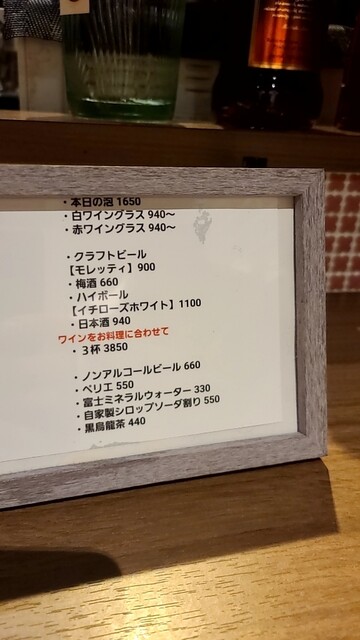 ・本日の泡 1650
・白ワイングラス 940〜
・赤ワイングラス 940〜
・クラフトビール
【モレッティ】900
・梅酒 660
・ハイボール
【イチローズホワイト】1100
・日本酒 940
ワインをお料理に合わせて
・３杯 3850
・ノンアルコールビール 660
・ペリエ 550
・富士ミネラルウォーター 330
・自家製シロップソーダ割り 550
・黒烏龍茶 440